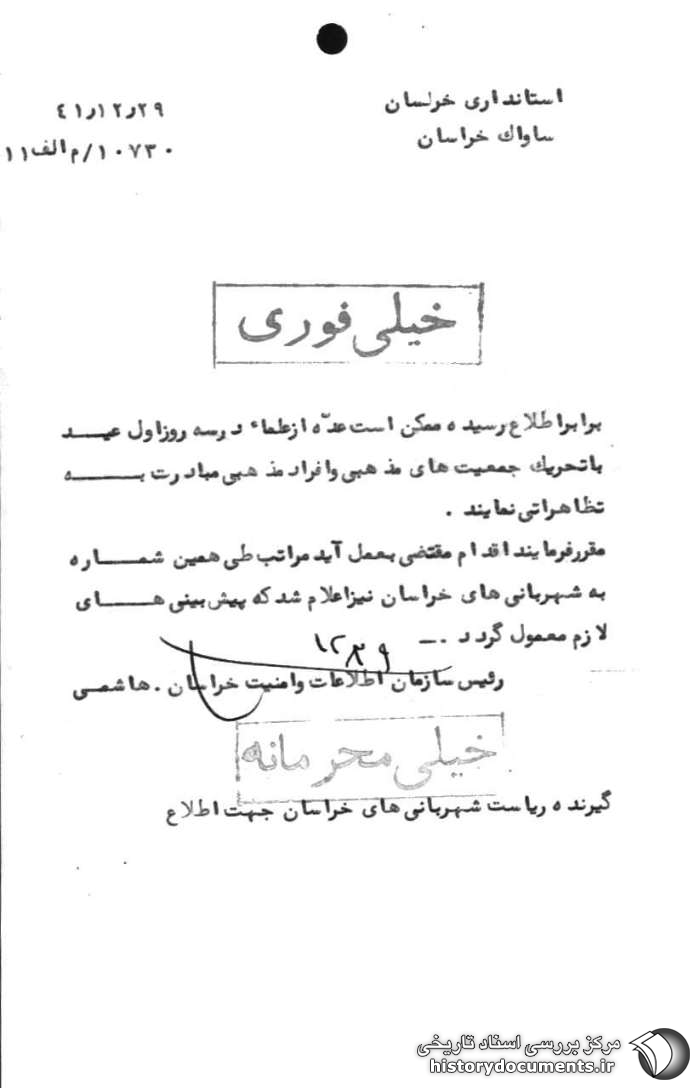 استانداری خراسان
۴۱٫۱۲٫۲۹
ساواک خراسان
۱۰۷۳۰/م الف ۱۱
خیلی فوری
برابر اطلاع رسیده ممکن است عدّه از علماء در سه روز اول عیـــد
با تحریک جمعیت های مذهبی و افراد مذهبی مبادرت بـــه
تظاهراتی نمایند .
مقرر فرمایند اقدام مقتضی بعمل آید مراتب طی همین شمـــاره
به شهربانی های خراسان نیز اعلام شد که پیش بینی هـــای
لازم معمول گردد .ــ
رئیس سازمان اطلاعات و امنیت خراسان . هاشمی
خیلی محرمانه
گیرنده ریاست شهربانی های خراسان جهت اطلاع
مرکز بررسی اسناد تاریخی
historydocuments.ir